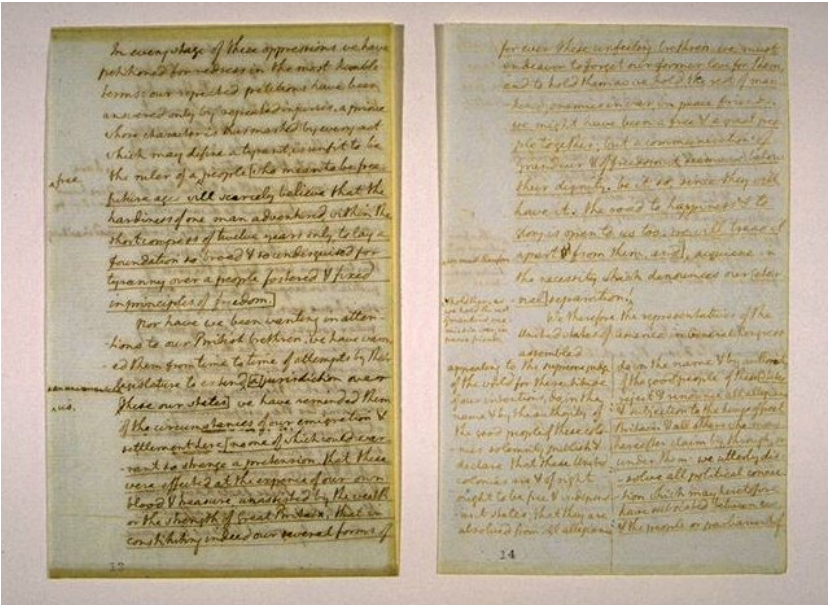 In every stage of these oppressions we have
petitioned for redress in the most humble
terms: our repeated petitions have been
answered only by repeated injuries. a prince
whose character is thus marked by every act
which may define a tyrant, is unfit to be
^free
the ruler of a people [who mean to be free.
future ages will scarcely believe that the
hardiness of one man adventured within the
short compass of twelve years only to lay a
foundation so broad & so undisguised for
tyranny over a people fostered & fixed
in principles of freedom.]
Nor have we been wanting in atten-
-tions to our British brethren. we have warn-
-ed them from time to time of attempts by their
legislature to extend [a] jurisdiction over
us.
[these our states] we have reminded them
of the circumstances of our emigration &
settlement here [no one of which could war-
-rant so strange a pretension. that these
were effected at the expence of our own
blood & treasure, unassisted by the wealth
or the strength of Great Britain: that in
constituting indeed our several forms of
13
for ever these unfeeling brethren. we must
endeavor to forget our former love for them,
and to hold them as we hold the rest of man-
-kind, enemies in war, in peace friends.
we might have been a free & a great peo-
ple together; but a communication of
grandeur & of freedom it seems is below
their dignity. be it so, since they will
have it. the road to happiness & to
glory is open to us too. we will tread it
apart from them, and], acquiesce in
we must therefore
the necessity which denounces our eter-
nal] separation!
& hold them, as
we hold the rest
of mankind, ene-
mies in war, in
peace friends.
We therefore the representatives of the
United states of America in General Congress
assembled
appealing to the supreme judge
of the world for the rectitude
of our intentions, do, in the
name & by the authority of
the good people of these colo-
nies solemnly publish &
declare that these United
colonies are & of right
ought to be free & indepen-
-ent states; that they are
absolved from all allegiance
do, in the name & by authority
of the good people of these [states
reject & renounce all allegiance
& subjection to the kings of Great
Britain & all others who may
hereafter claim by, through, or
under them: we utterly dis-
-solve all political connec-
-tion which may heretofore
have subsisted between us
& the people or parliament of
14